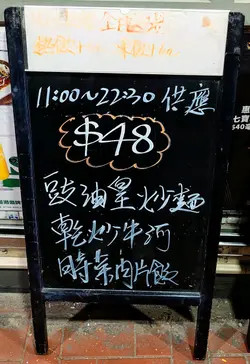 11:00~22:30 供應
$48
豉油皇炒麵
乾炒牛河
時菜肉片飯
惠
七寶
$40